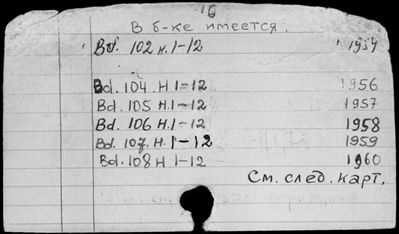 16
В б-ке имеется.
Bd. 102 н. 1-12 1954
Bd. 104. Н 1-12 1956
Bd. 105 н. 1-12 1957
Bd. 106 н. 1-12 1958
Bd. 107. н. 1-12 1959
Bd. 108 н 1-12 1960
См. след. карт.